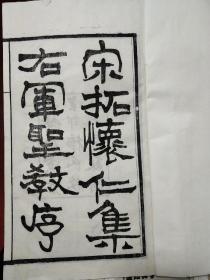 宋拓懷仁集
右軍聖教序